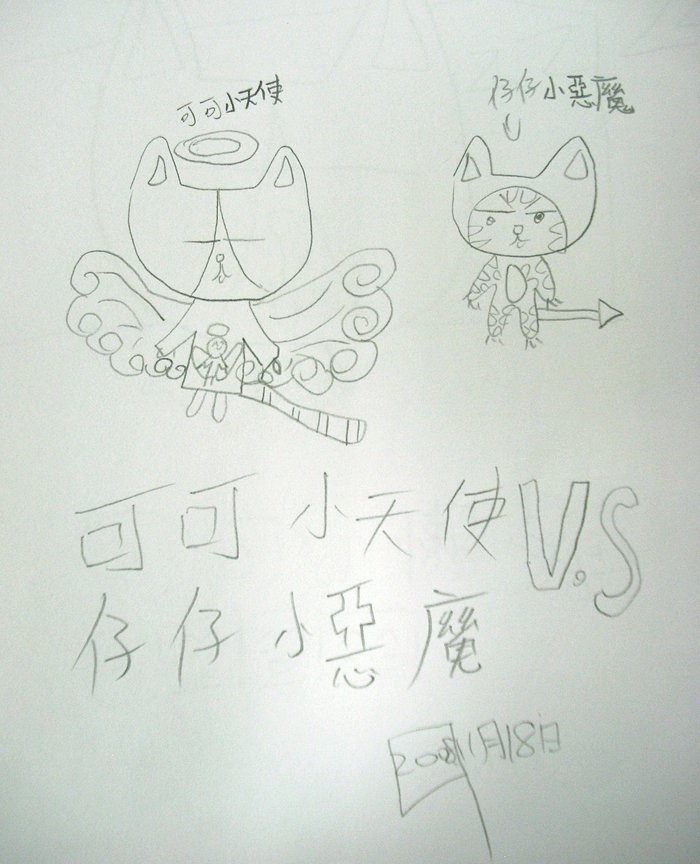 可可小天使
仔仔小惡魔
可可 小天使 V.S
仔仔 小惡魔
2008 1月18日